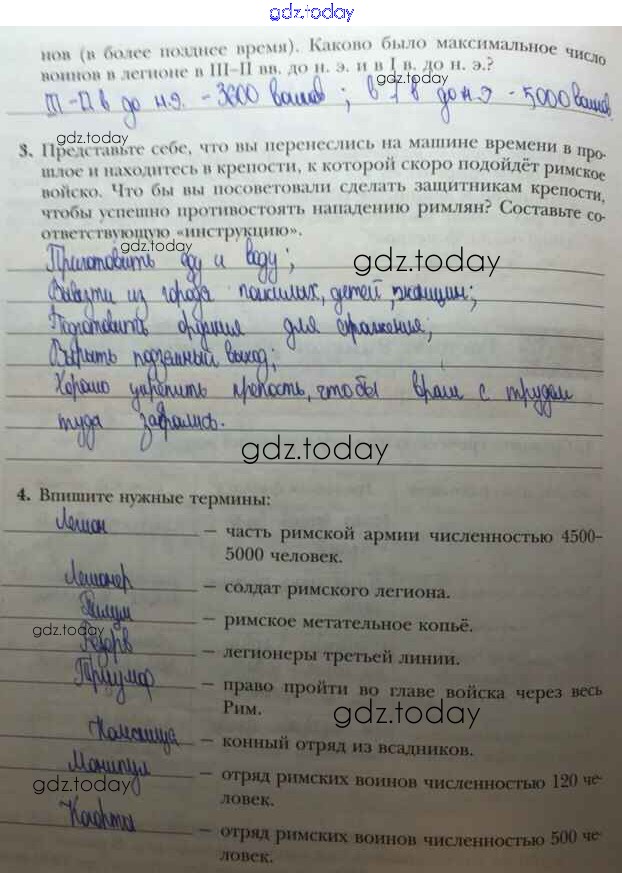 gdz.today
нов (в более позднее время). Каково было максимальное число
воинов в легионе в III–II вв. до н. э. и в I в. до н. э.?
III – II в до н.э. - 3600 воинов ; в I в до н.э - 5000 воинов.
gdz.today
3. Представьте себе, что вы перенеслись на машине времени в про-
шлое и находитесь в крепости, к которой скоро подойдёт римское
войско. Что бы вы посоветовали сделать защитникам крепости,
чтобы успешно противостоять нападению римлян? Составьте со-
ответствующую «инструкцию».
gdz.today
Приготовить еду и воду;
gdz.today
Вывезти из города пожилых, детей, женщин;
Подготовить орудия для сражения;
Вырыть подземный выход;
Хорошо укрепить крепость, чтобы враги с трудом
туда забрались.
gdz.today
4. Впишите нужные термины:
Легион — часть римской армии численностью 4500-
5000 человек.
Легионер — солдат римского легиона.
Пилум — римское метательное копьё.
gdz.today
Резерв — легионеры третьей линии.
Триумф — право пройти во главе войска через весь
Рим.
gdz.today
Конница — конный отряд из всадников.
Манипул — отряд римских воинов численностью 120 че-
ловек.
gdz.today
Когорта — отряд римских воинов численностью 500 че-
ловек.